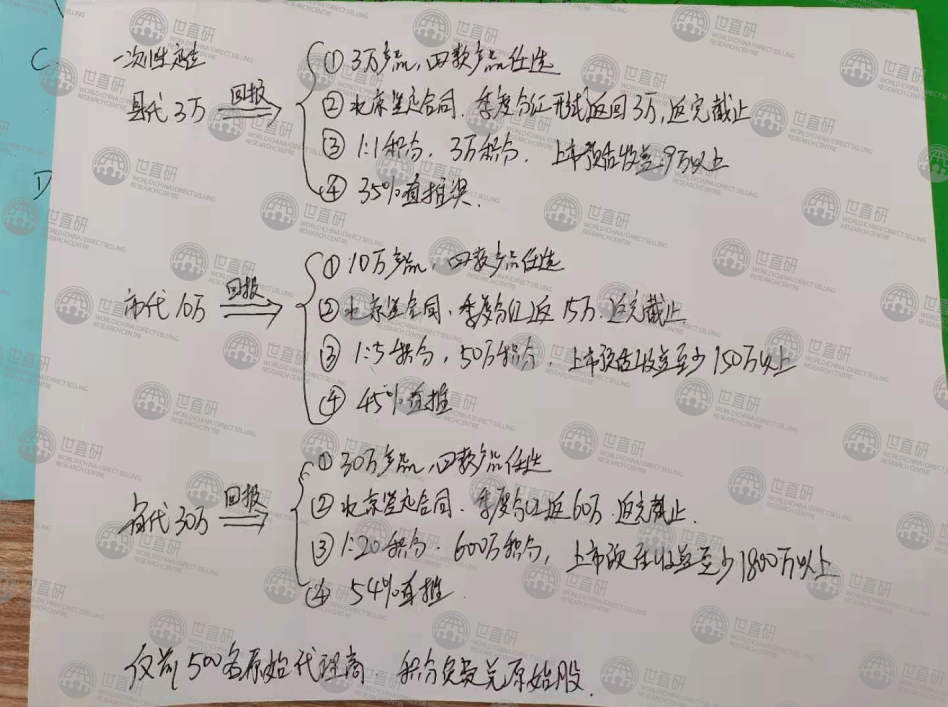 C
一次性定位
① 3万产品，四款产品任选
县代3万 回报 ② 北京签定合同，季度分红形式返回3万，返完截止
③ 1:1积分，3万积分，上市预估收益：9万以上
D
④ 35%直推奖.
① 10万产品，四款产品任选
市代10万 回报 ② 北京签合同，季度分红返15万．返完截止
③ 1:5积分，50万积分，上市预估收益至少150万以上
④ 45%直推
① 30万产品，四款产品任选
省代30万 回报 ② 北京签定合同．季度分红返60万．返完截止．
③ 1:20积分．600万积分，上市预估收益至少1800万以上
④ 54%直推．
仅前500名原始代理商 积分免费兑原始股．
世直研
WORLD CHINA DIRECT SELLING
RESEARCH CENTRE